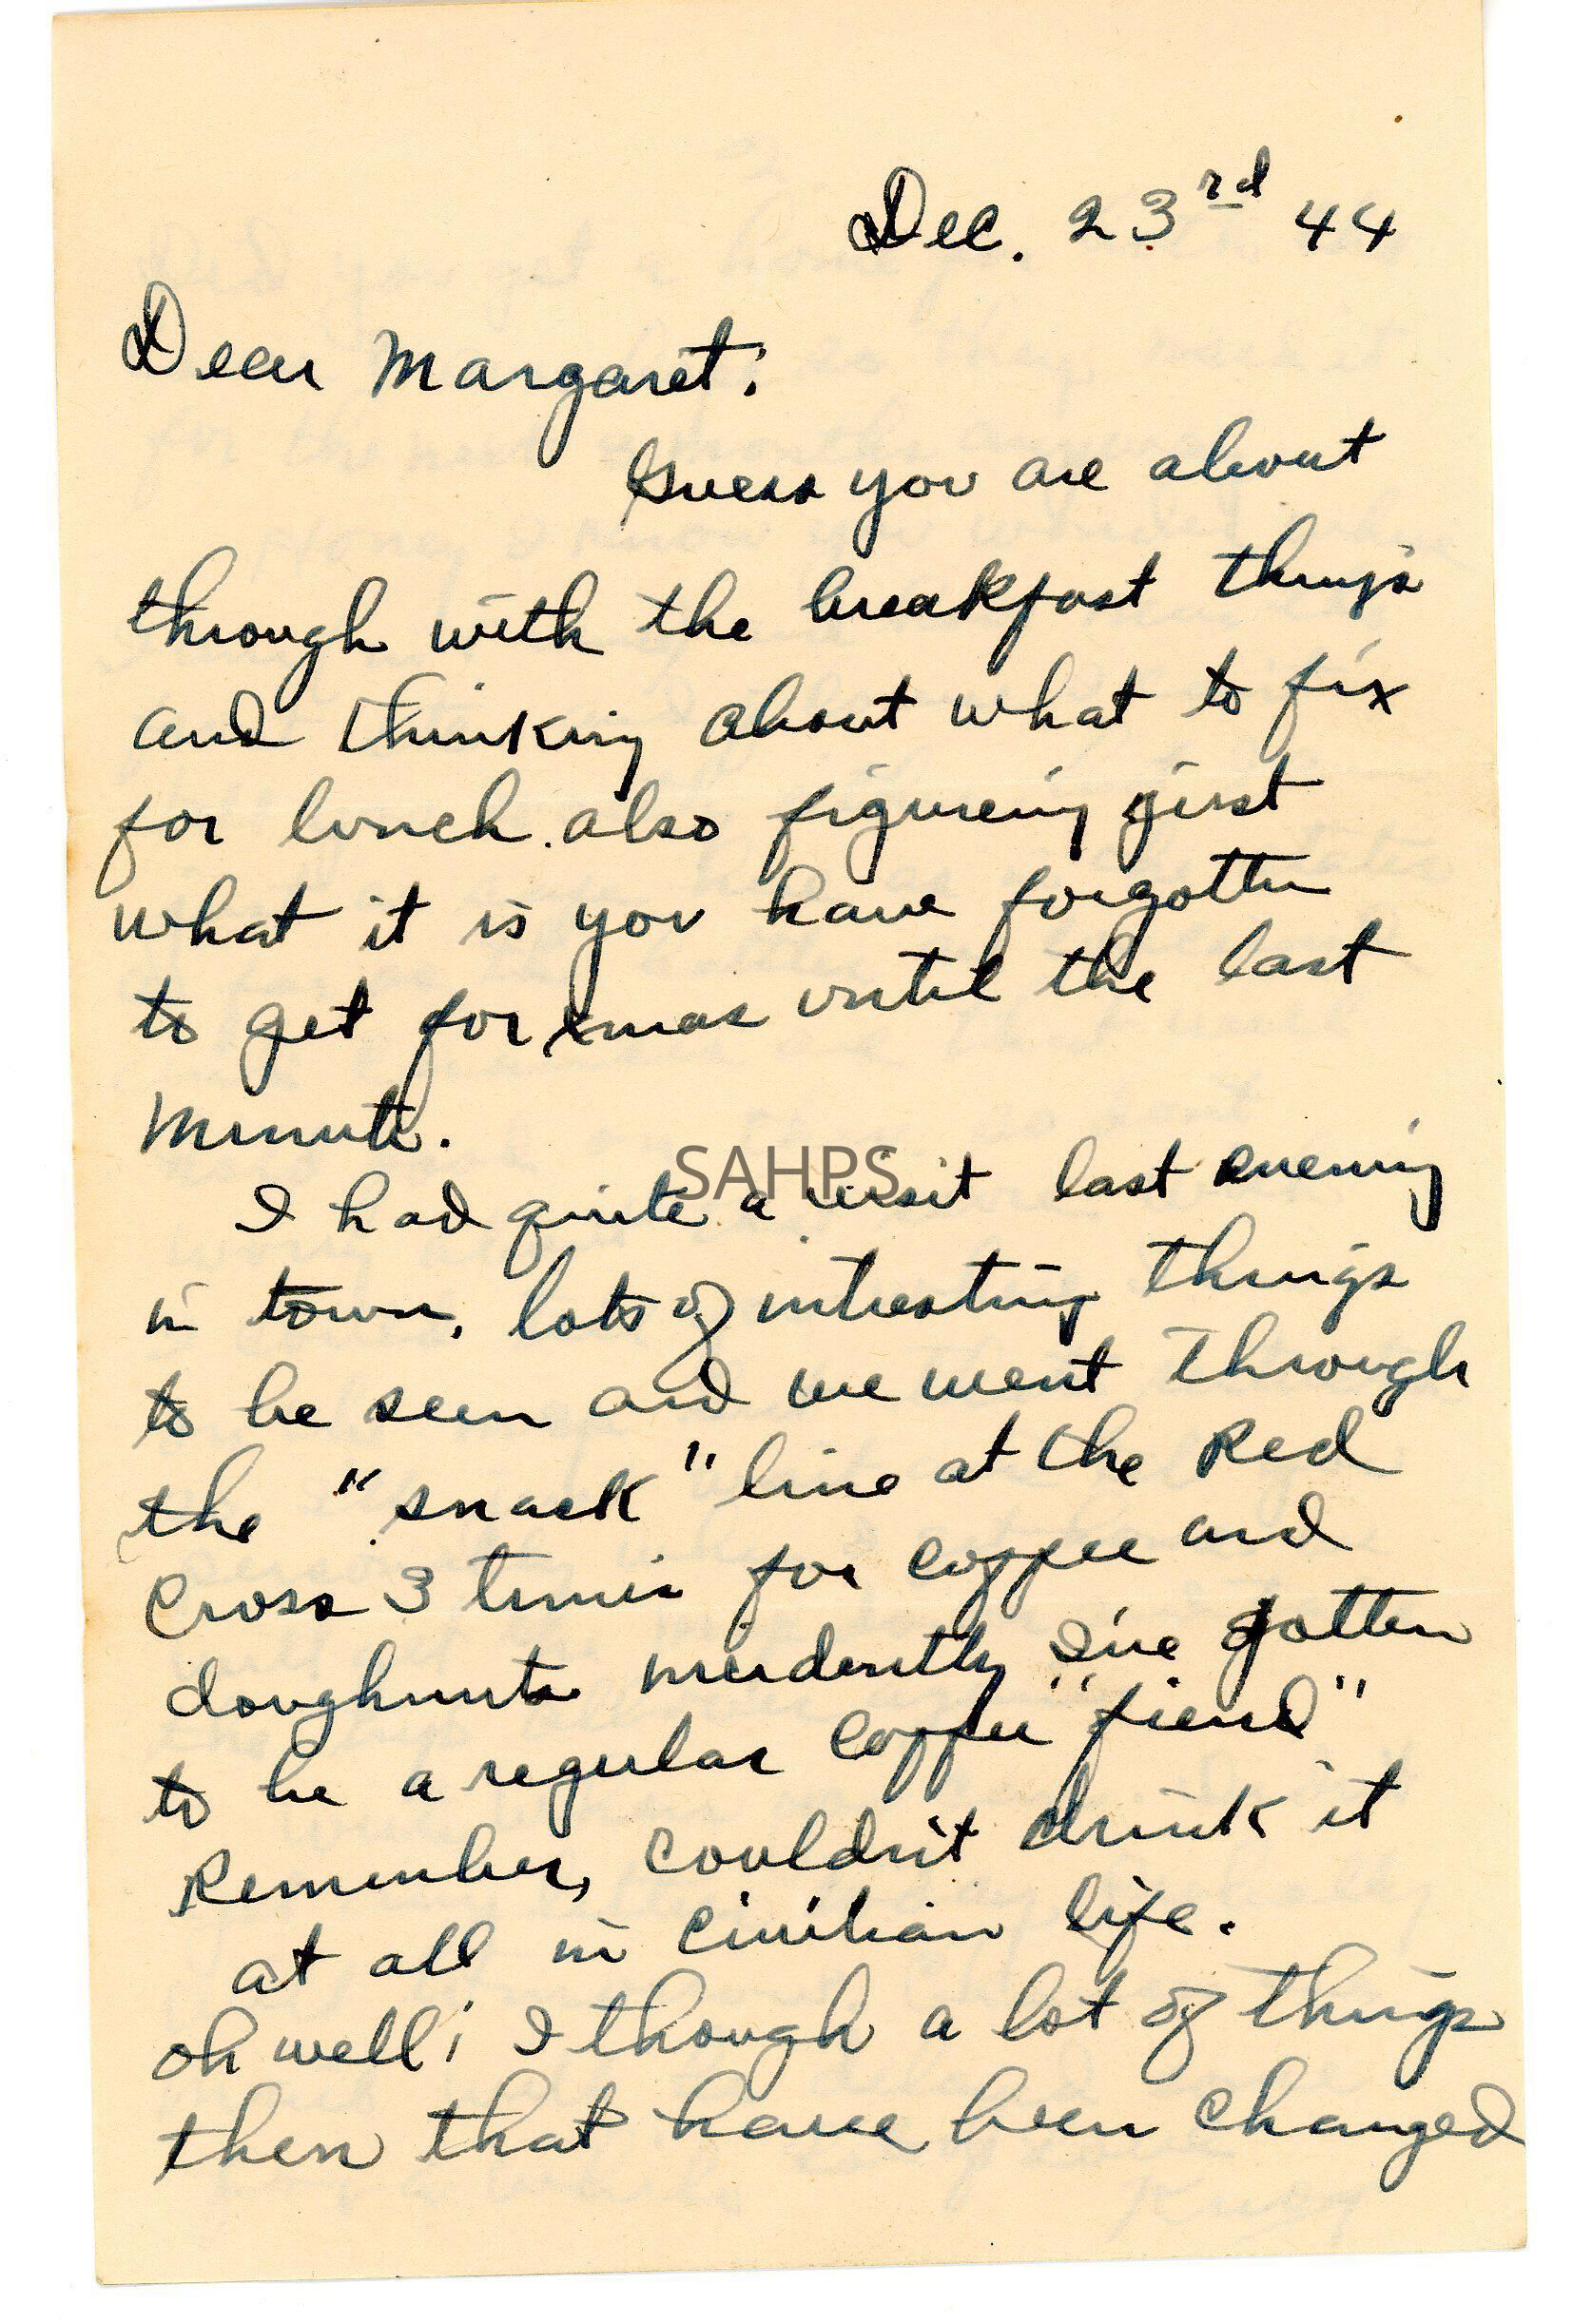 Dec. 23rd 44
Dear Margaret:
Guess you are about
through with the breakfast things
and thinking about what to fix
for lunch. also figureing just
what it is you have forgotten
to get for xmas until the last
minute.
SAHPS
I had quite a visit last evening
in town, lots of intresting things
to be seen and we went through
the "snack" line at the Red
Cross 3 times for coffee and
doughnuts I've gotten
to be a regular coffee "fiend"
Remember, couldn't drink it
at all in civilian life.
oh well; I though a lot of things
then that have been changed